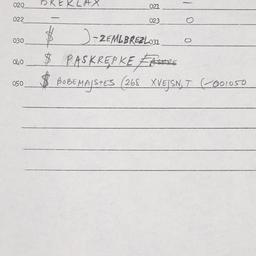 020 BRERLAX 021 —
022 — 023 O
030 $ )-ZEMLBREZL 031 O
040 $ PASKREPKE
050 $ BOBEMAJSTES (268 XVEJSN,T (-001050